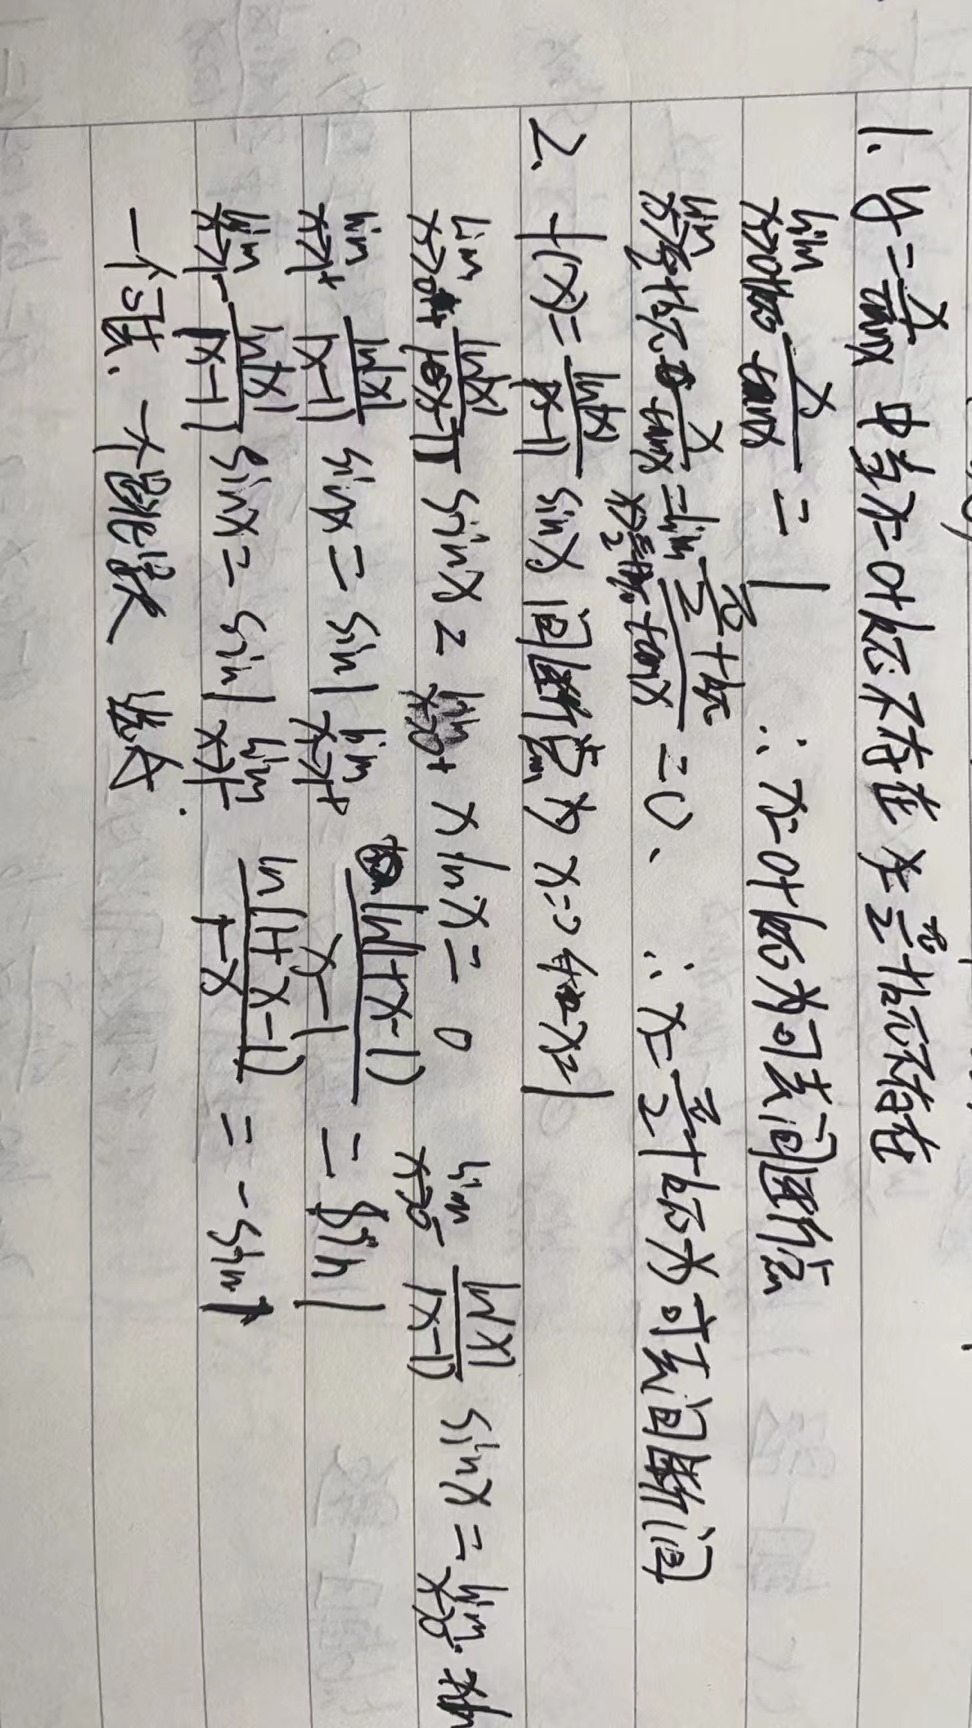 1. y=x/tanx 中当x=0+kπ不存在 x=π/2+kπ不存在
lim x→0+kπ x/tanx = 1 ∴ x=0+kπ为可去间断点
lim x→π/2+kπ x/tanx = lim x→π/2+kπ (π/2+kπ)/tanx = 0、 ∴ x=π/2+kπ为可去间断间
2、 f(x)= ln|x|/|x-1| sinx 间断点为 x=0 x=1
lim x→0+ ln|x|/|x-1| sinx = lim x→0+ xlnx = 0 lim x→0- ln|x|/|x-1| sinx = lim x→0-
lim x→1+ ln|x|/|x-1| sinx = sin1 lim x→1+ ln(1+x-1)/x-1 = sin1
lim x→1- ln|x|/|x-1| sinx = sin1 lim x→1- ln(1+x-1)/1-x = -sin1
一个可去、一个跳跃 选A.